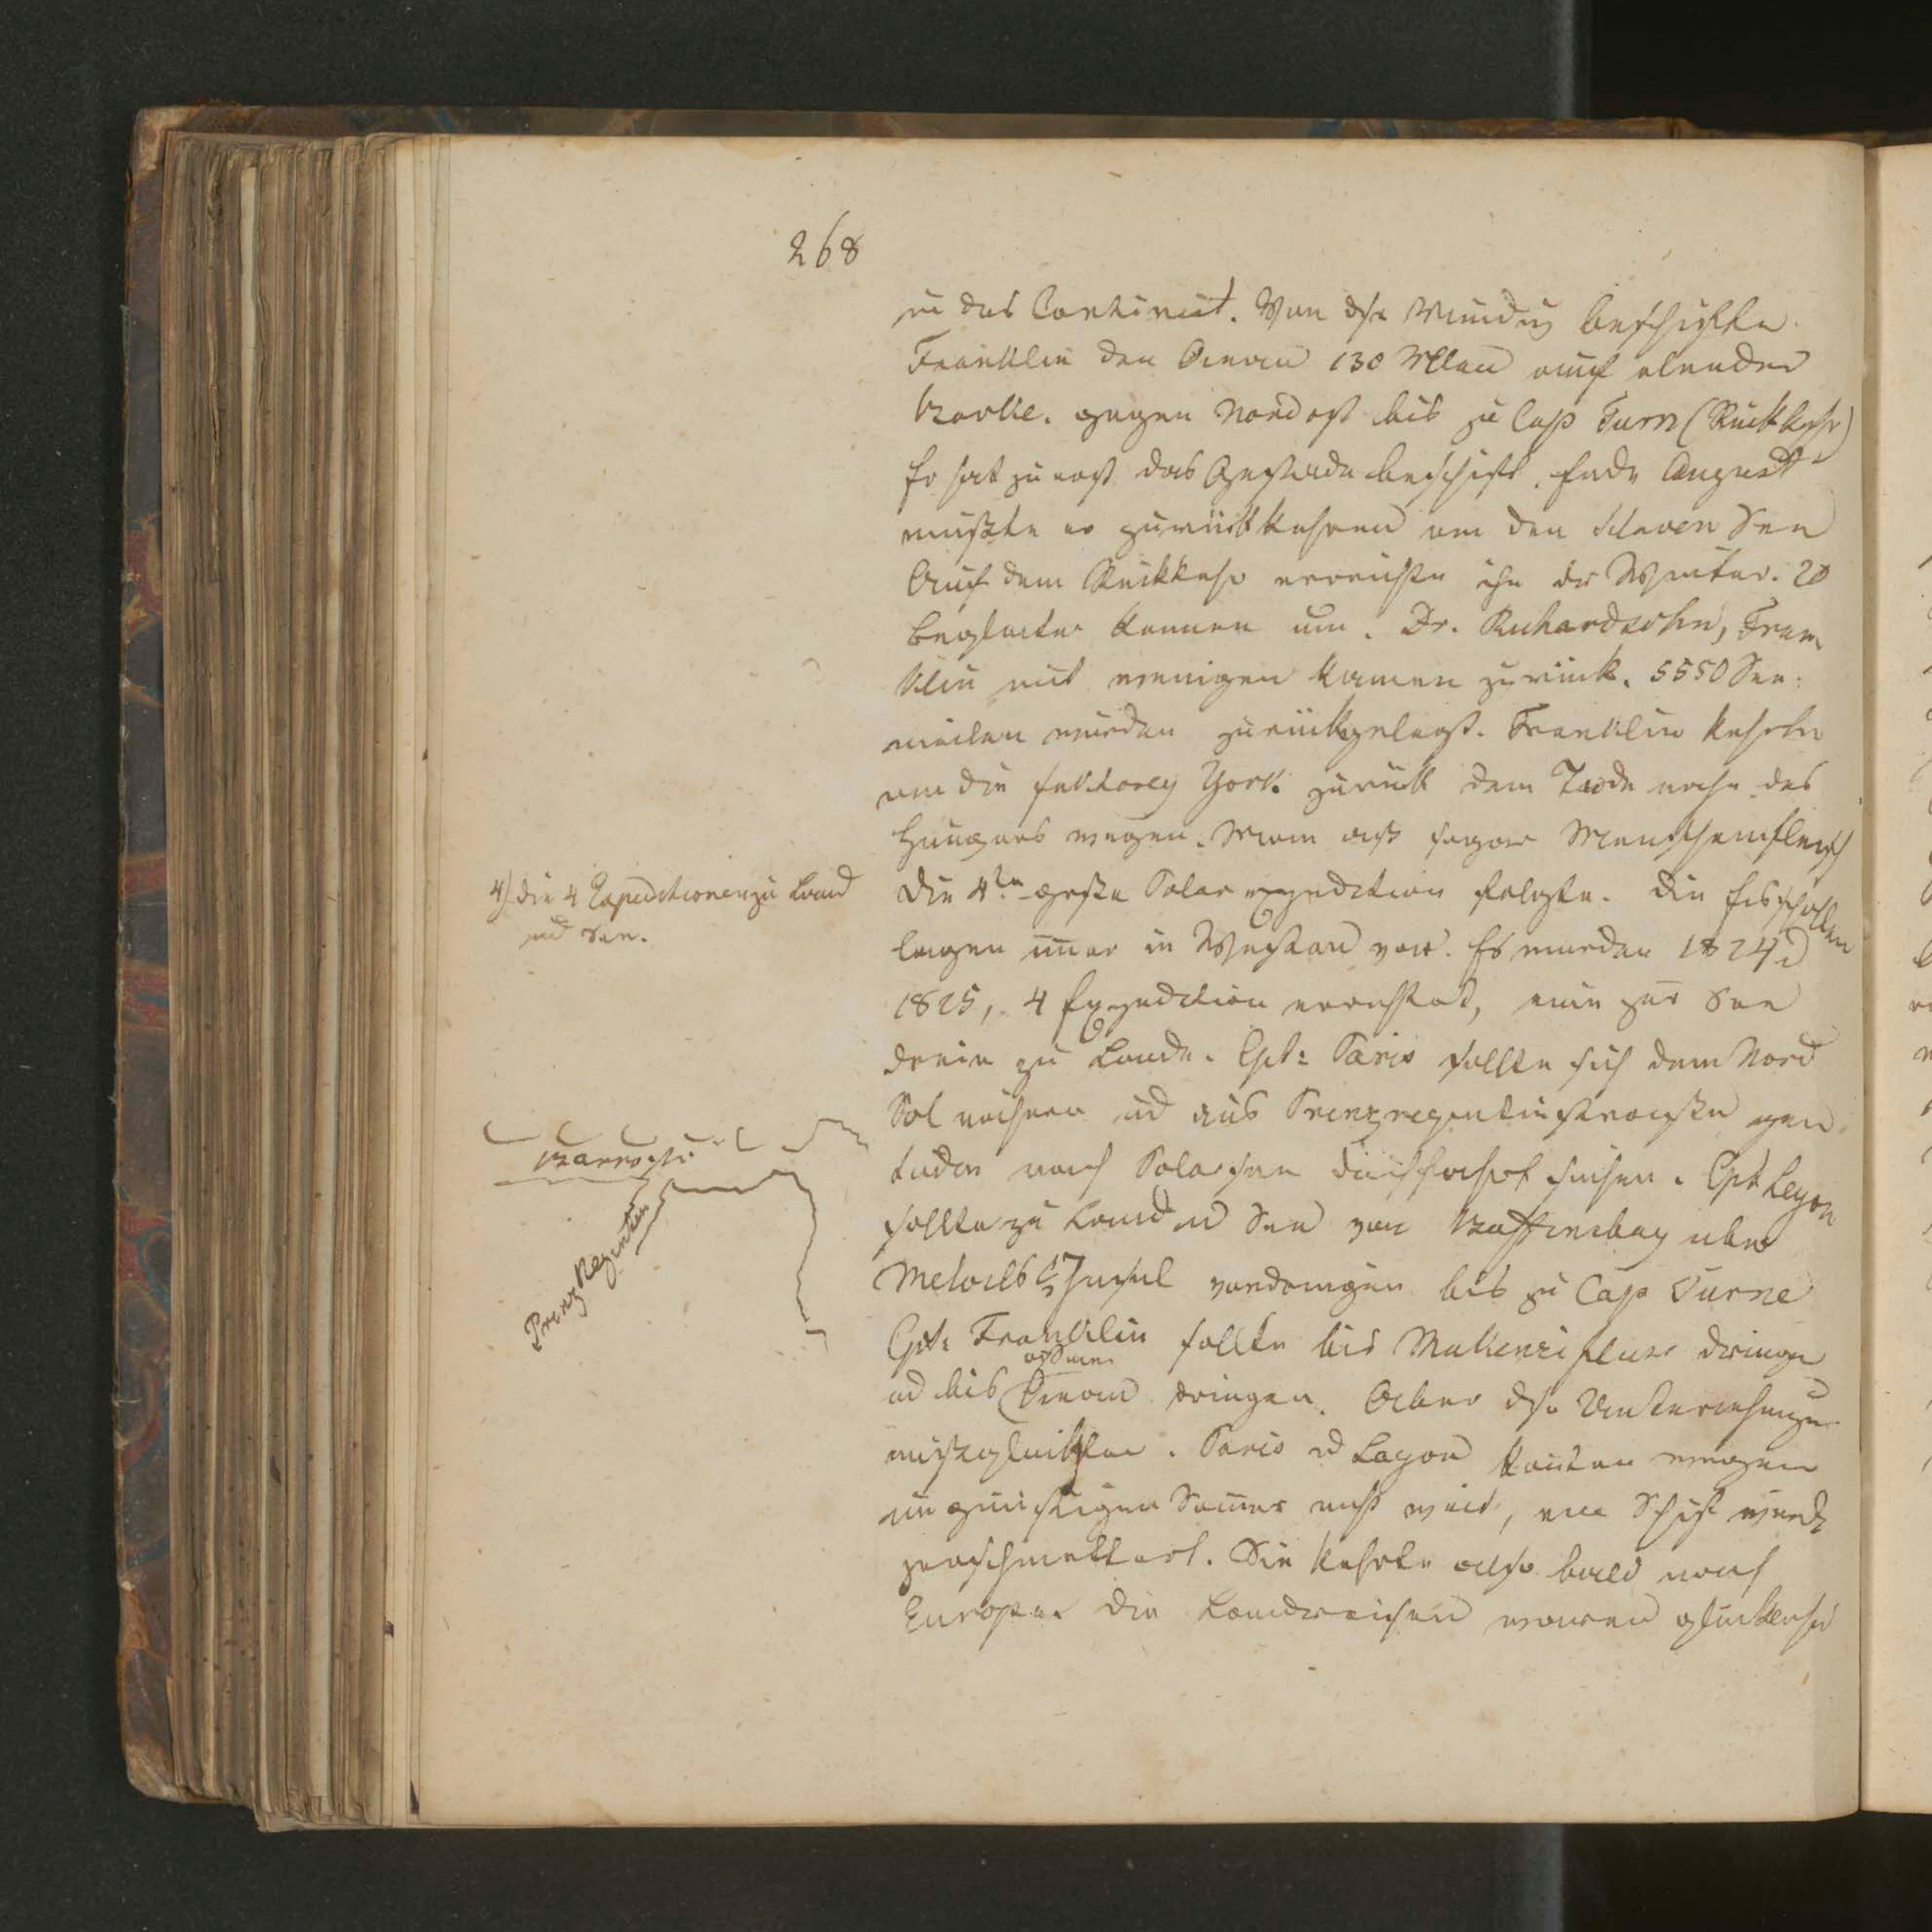 268
in das Continent. Von dsr Mündung beschiffte
Franklin den Ocean 130 Mlen auf elender
Barke. gegen Nordost bis zu Cap Turn (Rückkehr)
Er hat zuerst das Gestade beschifft. Ende August
mußte er zurückkehren an den Sklaven See
Auf dem Rückkehr erreichte ihn der Winter. 20
Begleiter kamen um. Dr. Richardsohn, Fran
klin mit wenigen kamen zurück. 5550 See-
meilen wurden zurückgelegt. Franklin kehrte
an die Faktorey York zurück dem Tode nahe des
Hungers wegen. Man aß sogar Menschenfleisch
4) die 4 Expeditionen zu Land
und See.
Die 4te große Polar expedition folgte. Die Eisschollen
lagen immer in Westen vor. Es wurden 1824 u
1825, 4 Expedition veranstalt, eine zur See
dreie zu Lande. Cpt: Paris sollte sich dem Nord
Pol nähern ud aus Prinzregentinstraße
nach Polarsee Durchfahrt suchen. Cpt Leyon
sollte zu Land ud See von Baffinsbay über
Melvils Insel vordringen bis zu Cap Turne
Cpt: Franklin sollte bis Makenzi fluss dringen
ud bis Ocean dringen. Aber dse Unternehmungen
mißglückten. Paris ud Layon konnten wegen
ungünstigen Sommer nicht weit, ein Schiff wurde
zerschmettert. Sie kehrte also bald nach
Europa. Die Landreisen waren glücklicher
Barrostr.
Prinz Regenten